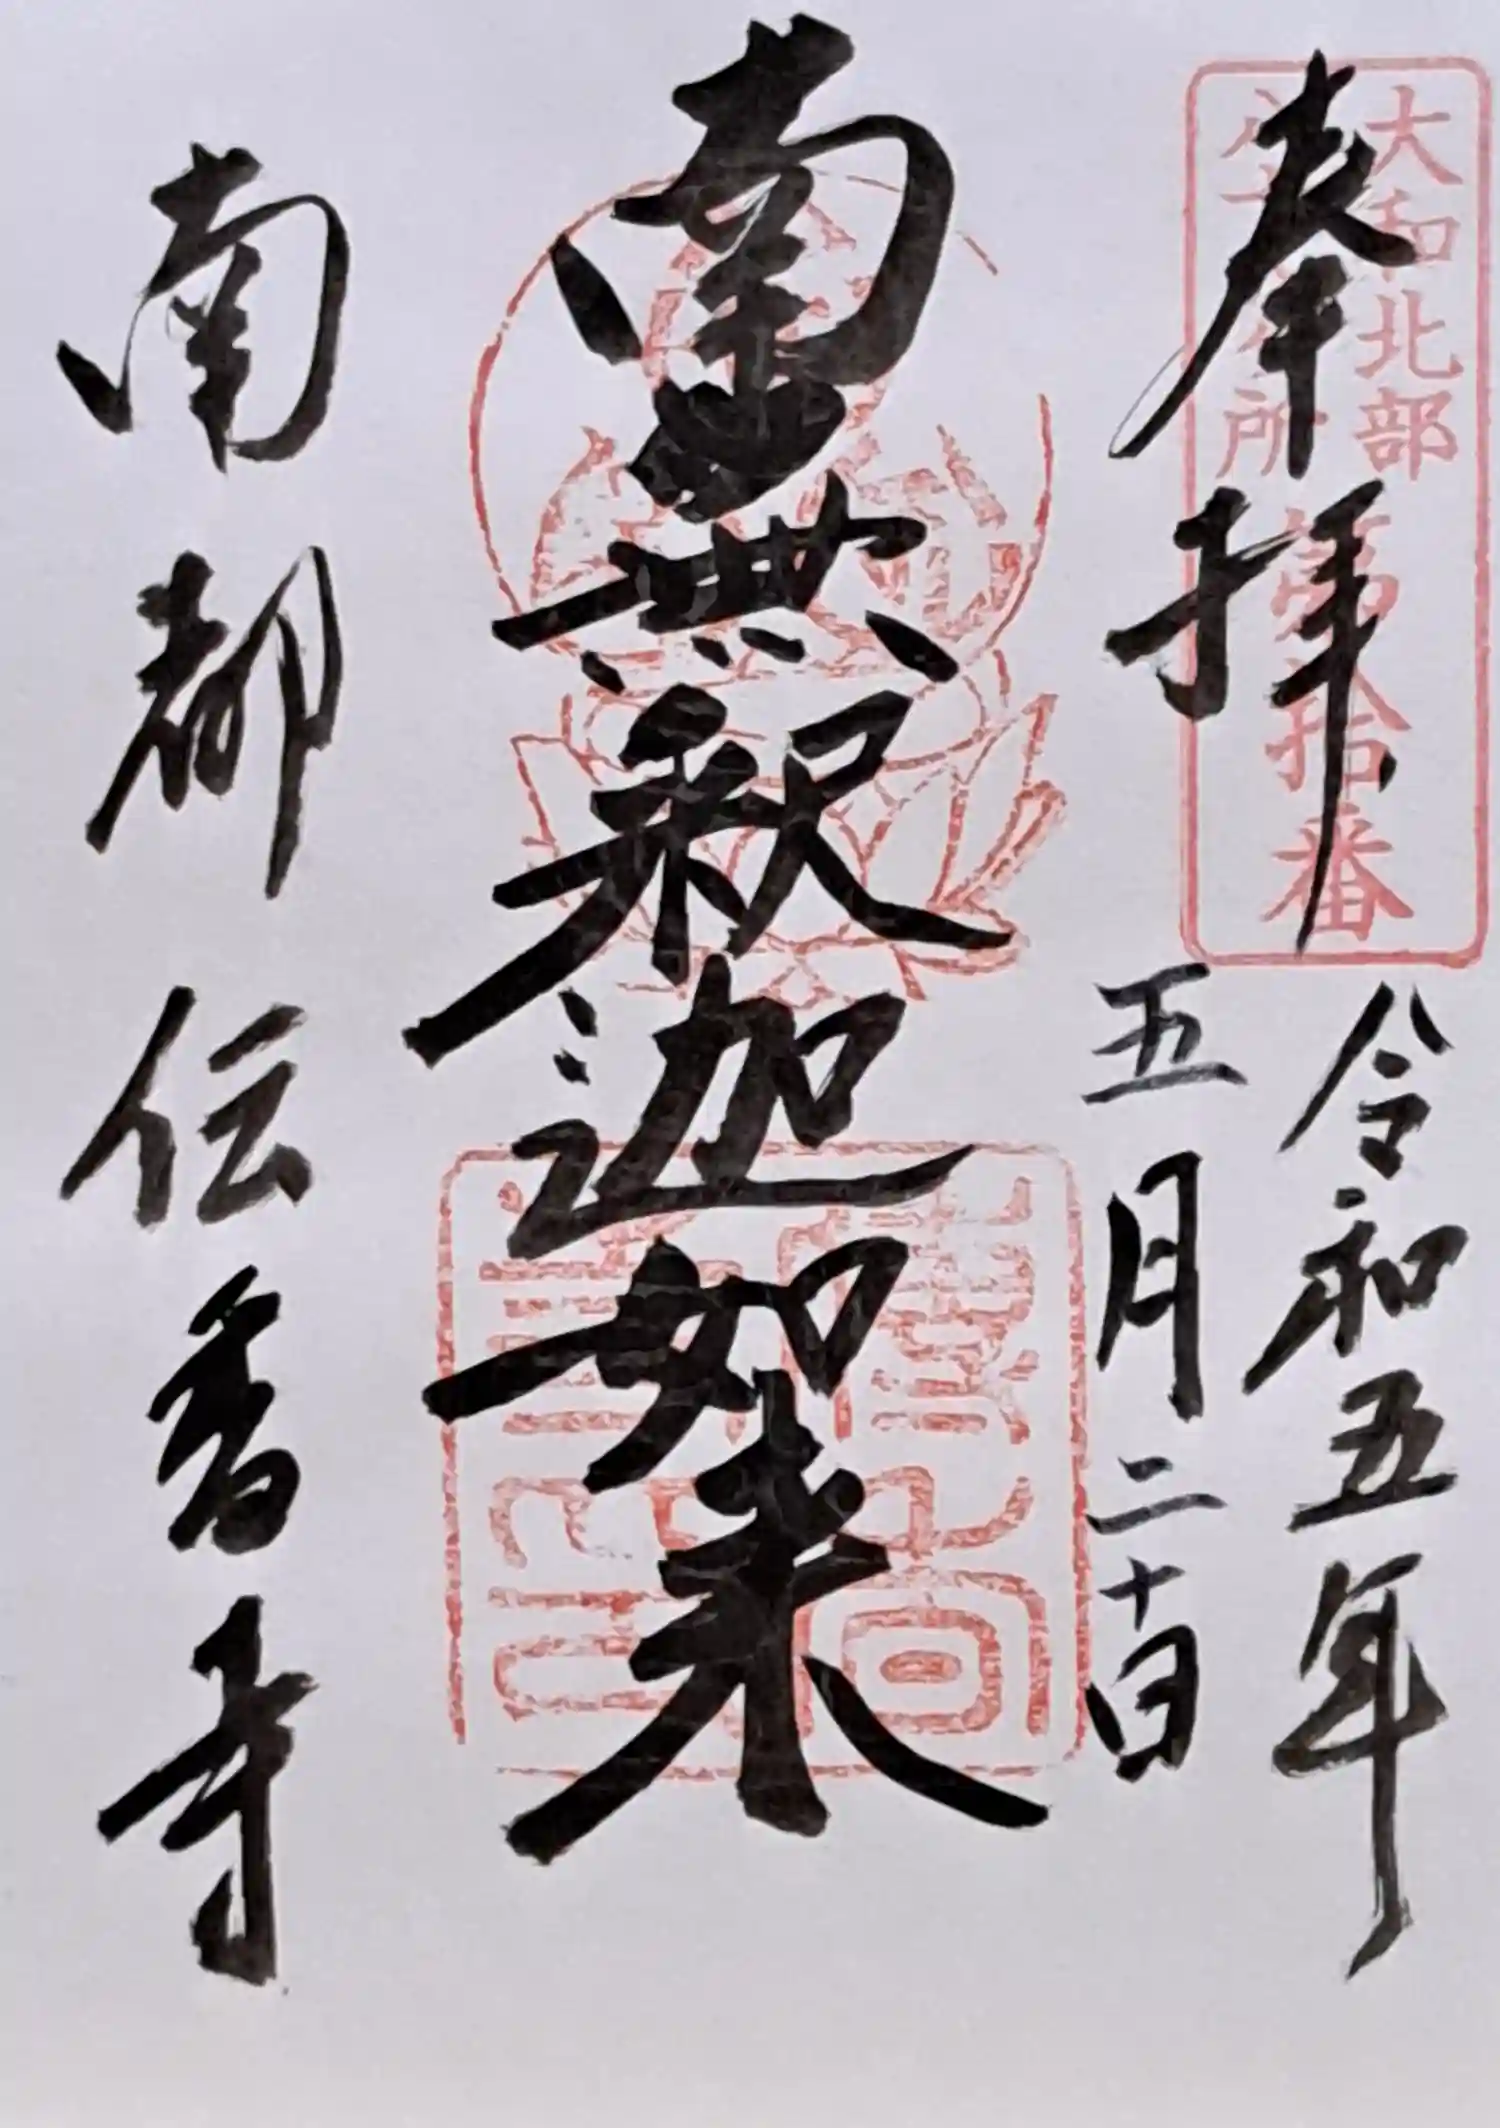 奉拝
大和北部
八十八ヶ所
第拾番
令和五年
五月二十日
南無釈迦如来
南都 伝香寺